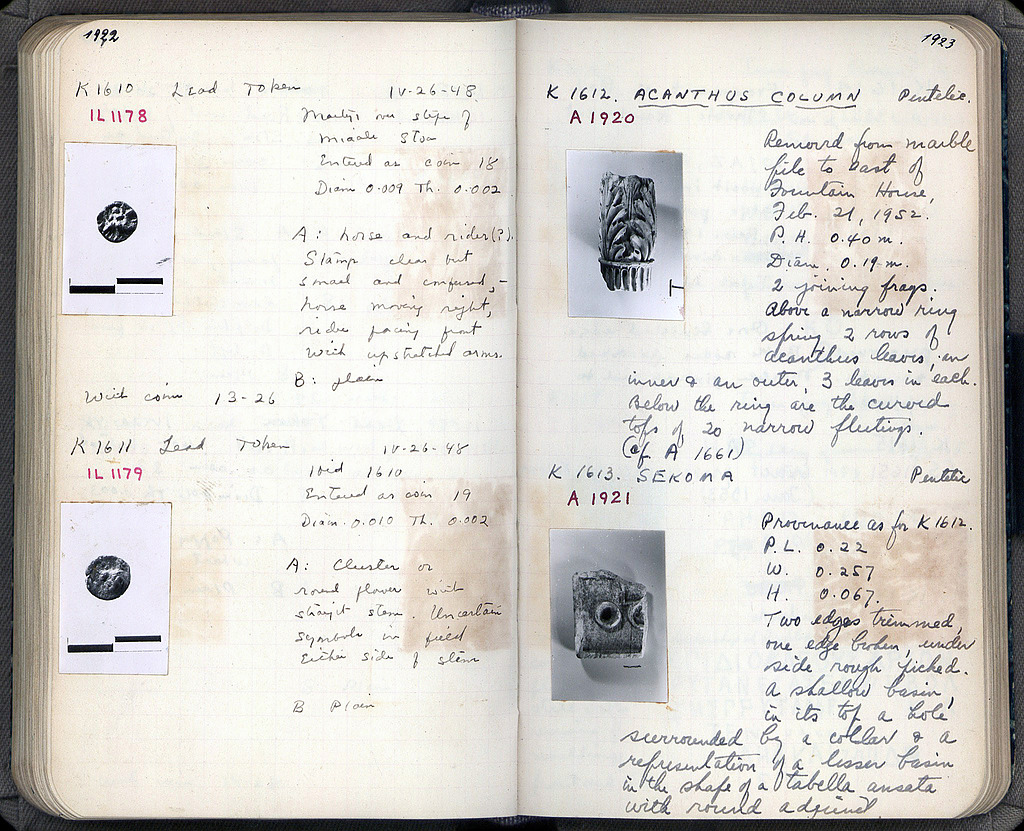 1922
K 1610 Lead Token IV-26-48
IL 1178
Martyi over steps of
Middle Stoa
Entered as coin 18
Diam 0.009 Th. 0.002
A: horse and rider(?).
Stamp clear but
small and confused,-
horse moving right,
rider facing front
with upstretched arms.
B: plain
With coin 13-26
K 1611 Lead Token IV-26-48
IL 1179
Ibid 1610
Entered as coin 19
Diam. 0.010 Th. 0.002
A: Cluster or
round flower with
straight stem. Uncertain
symbols in field
either side of stem
B Plain
1923
K 1612. ACANTHUS COLUMN Pentelic.
A 1920
Removed from marble
pile to east of
Fountain House,
Feb. 21, 1952.
P.H. 0.40 m.
Diam. 0.19 m.
2 joining frags.
Above a narrow ring
spring 2 rows of
acanthus leaves, an
inner & an outer, 3 leaves in each.
Below the ring are the curved
tops of 20 narrow flutings.
(cf. A 1661)
K 1613. SEKOMA Pentelic
A 1921
Provenance as for K 1612.
P.L. 0.22
W. 0.257
H. 0.067.
Two edges trimmed,
one edge broken, under
side rough picked.
A shallow basin,
in its top a hole
surrounded by a collar & a
representation of a lesser basin
in the shape of a tabella ansata
with round